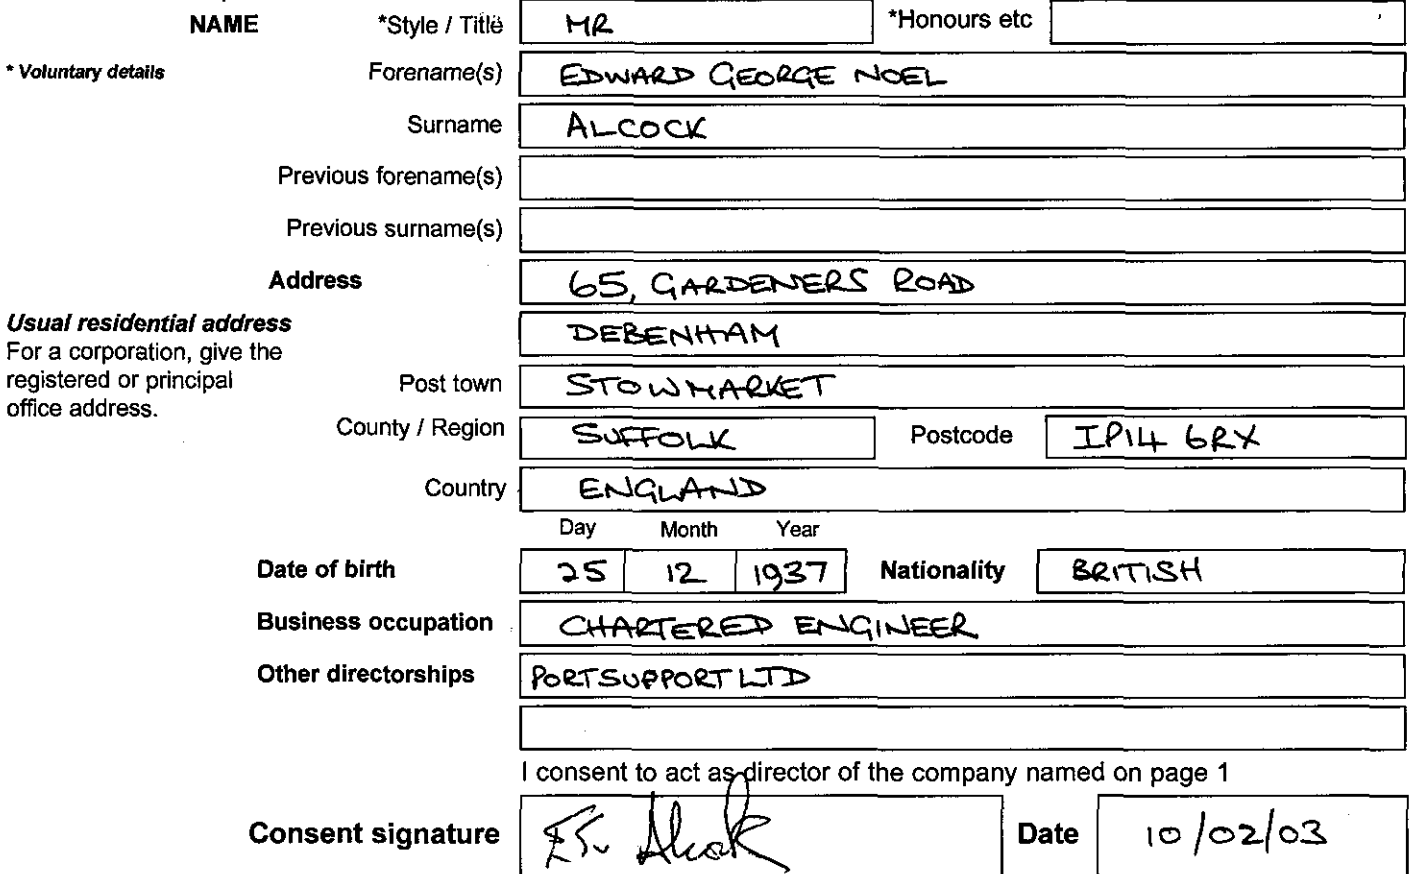 NAME *Style / Title MR *Honours etc
* Voluntary details Forename(s) EDWARD GEORGE NOEL
Surname ALCOCK
Previous forename(s)
Previous surname(s)
Address 65, GARDENERS ROAD
Usual residential address DEBENHAM
For a corporation, give the
registered or principal Post town STOWMARKET
office address.
County / Region SUFFOLK Postcode IP14 6RX
Country ENGLAND
Day Month Year
Date of birth 25 12 1937 Nationality BRITISH
Business occupation CHARTERED ENGINEER
Other directorships PORTSUPPORT LTD
I consent to act as director of the company named on page 1
Consent signature Date 10/02/03